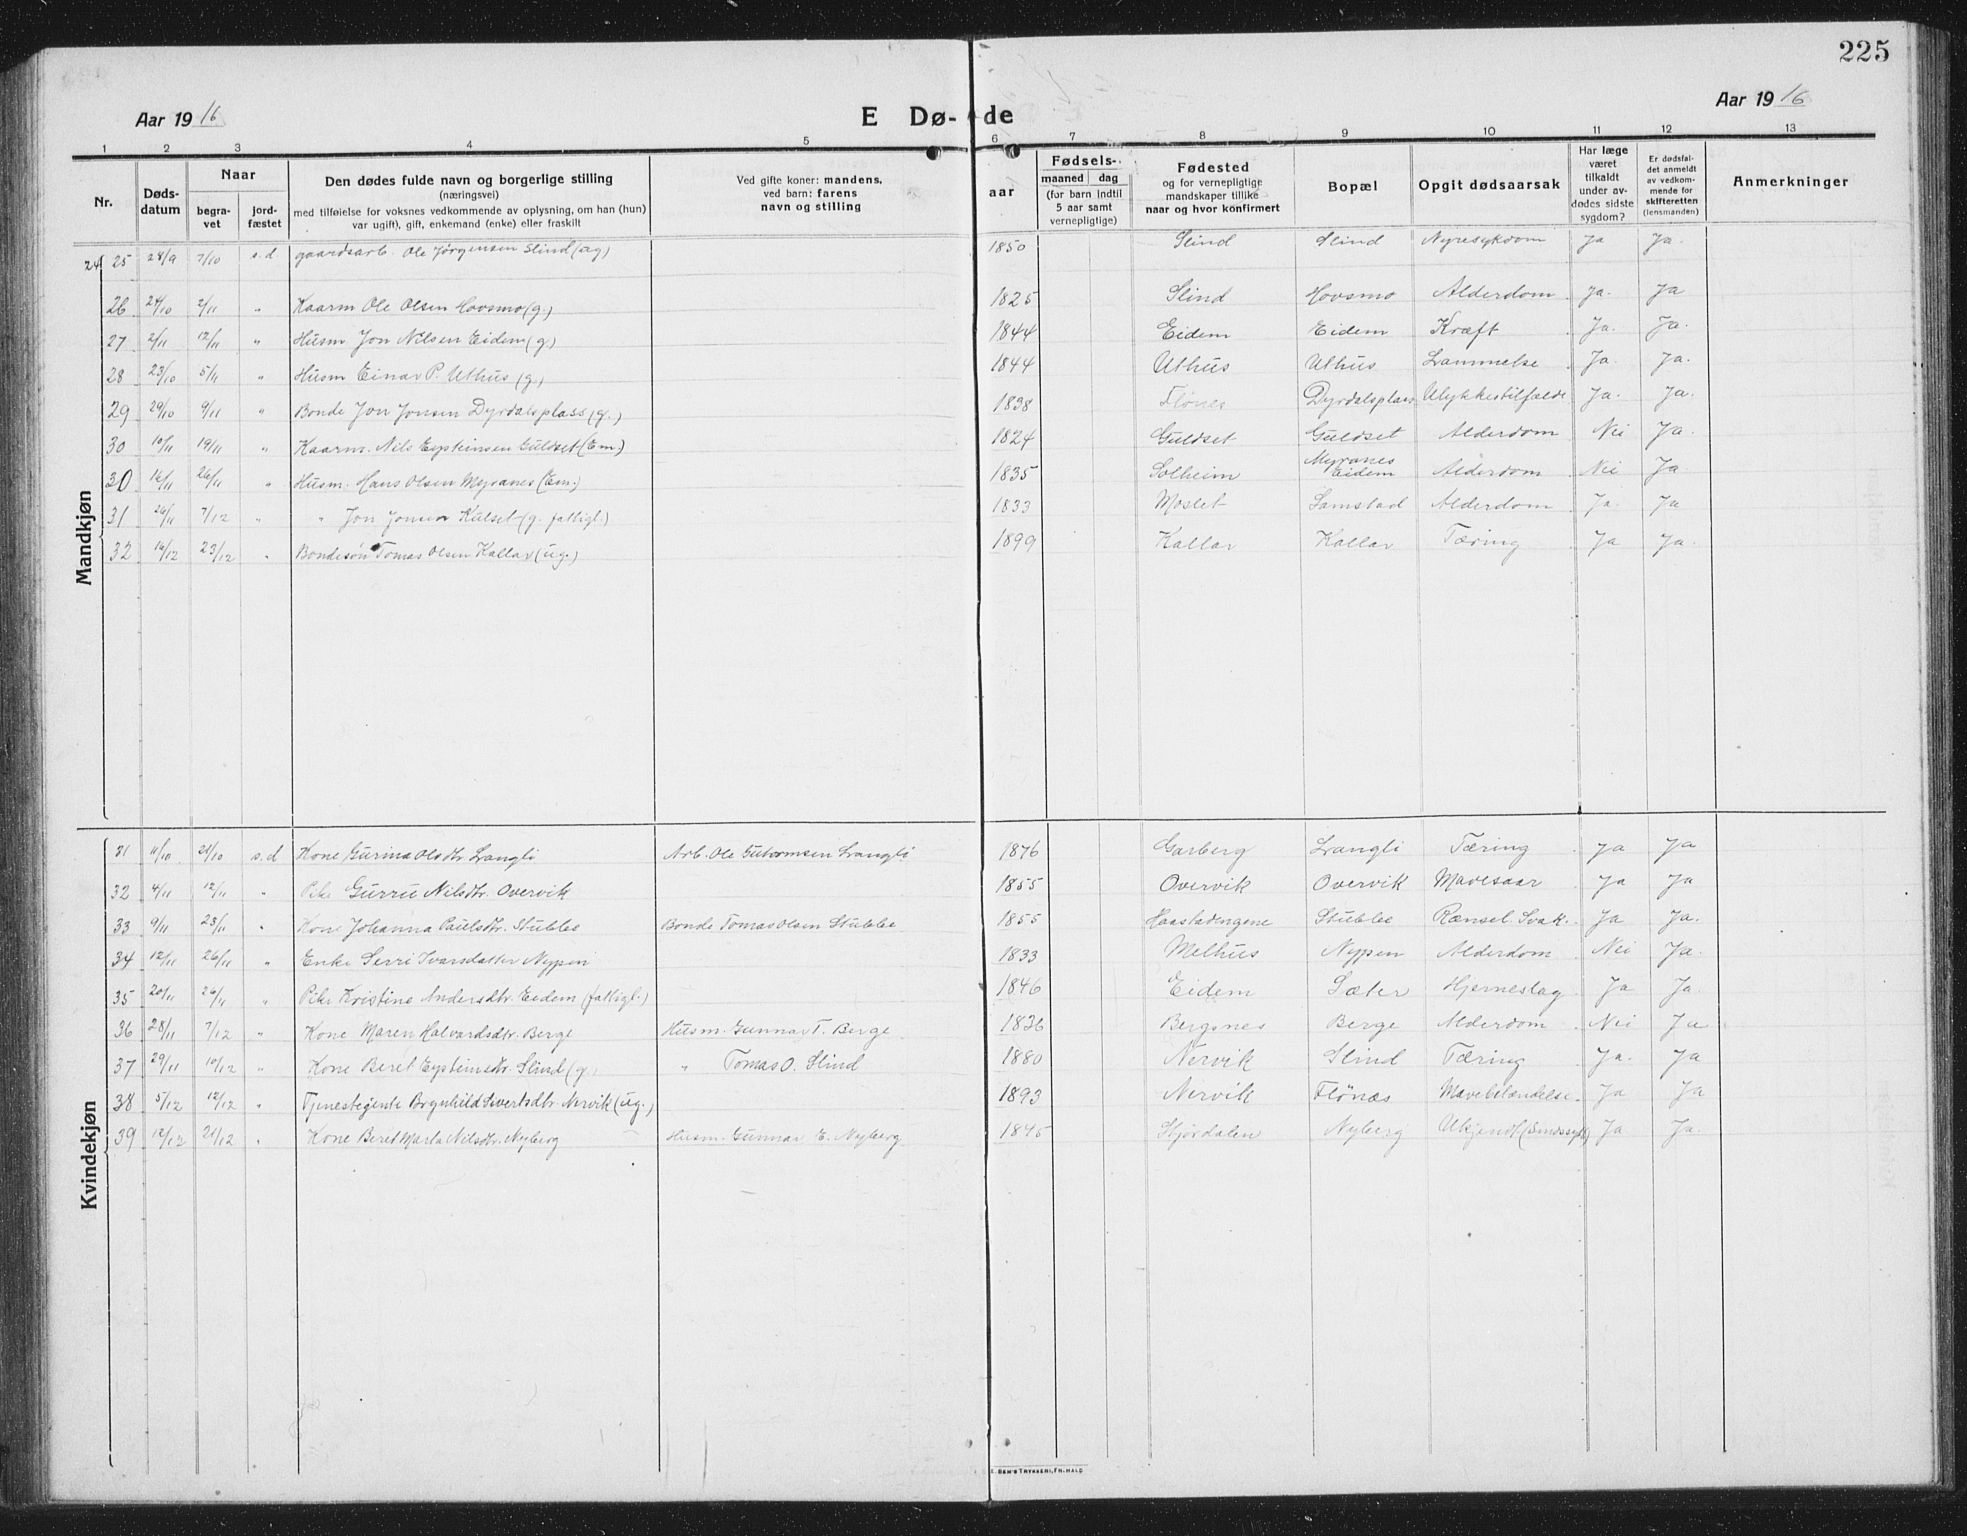 225
Aar 1916
E Dø-de
Aar 1916
1 2 3 4 5 6 7 8 9 10 11 12 13
Nr.
Døds-datum
Naar
begra-vet
jord-fæstet
Den dødes fulde navn og borgerlige stilling
(næringsvei)
med tilføielse for voksnes vedkommende av oplysning, om han (hun)
var ugift), gift, enkemand (enke) eller fraskilt
Ved gifte koner: mandens,
ved barn: farens
navn og stilling
aar
Fødsels-
maaned dag
(for barn indtil
5 aar samt
vernepligtige)
Fødested
og for vernepligtige
mandskaper tillike
naar og hvor konfirmert
Bopæl
Opgit dødsaarsak
Har læge
været
tilkaldt
under av-
dødes sidste
sygdom?
Er dødsfal-
det anmeldt
av vedkom-
mende for
skifteretten
(lensmanden)
Anmerkninger
Mandkjøn
24 25 28/9 7/10 s.d gaardsarb. Ole Jørgensen Slind (ug) 1850 Slind Slind Nyresykdom Ja Ja.
26 24/10 2/11 " Kaarm Ole Olsen Hovsmo (g.) 1825 Slind Hovsmo Alderdom Ja. Ja
27 2/11 12/11 " Husm Jon Nilsen Eidem (g.) 1844 Eidem Eidem Kræft Ja. Ja.
28 23/10 5/11 " Husm Einar P. Uthus (g.) 1844 Uthus Uthus Lammelse Ja. Ja.
29 29/10 9/11 " Bonde Jon Jonsen Dyrdalsplass (g.) 1838 Flönes Dyrdalsplass Ulykkestilfælde Ja. Ja.
30 10/11 19/11 " Kaarm. Nils Eysteinsen Guldset (Em) 1824 Guldset Guldset Alderdom Nei Ja.
30 16/11 26/11 " Husm. Hans Olsen Myranes (Em.) 1835 Solheim Myranes Eidem Alderdom Nei Ja
31 26/11 7/12 " " Jon Jonsen Kulset (g. fattigl.) 1833 Moslet Samstad Alderdom Ja Ja
32 14/12 23/12 " Bondesön Tomas Olsen Kallar (ug.) 1899 Kallar Kallar Tæring Ja Ja.
Kvindekjøn
31 11/10 21/10 s.d Kone Gurina Olsdtr. Langli Arb. Ole Guttormsen Langli 1876 Garberg Langli Tæring Ja Ja
32 4/11 12/11 " Pike Gurru Nilsdtr. Overvik 1855 Overvik Overvik Mavesaar Ja Ja
33 9/11 23/11 " Kone Johanna Paulsdtr. Stubbe Bonde Tomas Olsen Stubbe 1855 Haastadengene Stubbe Rænsel Svak. Ja Ja.
34 12/11 26/11 " Enke Serri Ivarsdatter Nypen 1833 Melhus Nypen Alderdom Nei Ja.
35 20/11 26/11 " Pike Kristine Andersdtr. Eidem (fattigl.) 1846 Eidem Sæter Hjerneslag Ja Ja.
36 28/11 7/12 " Kone Maren Halvardsdtr. Berge Husm. Gunnar T. Berge 1836 Bergsnes Berge Alderdom Nei Ja
37 29/11 10/12 " Kone Beret Eysteinsdtr. Slind (g.) " Tomas O. Slind 1880 Nervik Slind Tæring Ja. Ja
38 5/12 12/12 " Tjenestegente Brynhild Sivertsdtr. Nervik (ug.) 1893 Nervik Flönæs Mavebetændelse Ja Ja
39 12/12 21/12 " Kone Beret Marta Nilsdtr. Nyberg Husm. Gunnar E. Nyberg 1845 Stjördalen Nyberg Ukjendt (Sindssyk) Ja Ja.
E. SEM'S TRYKKERI, FR.HALD